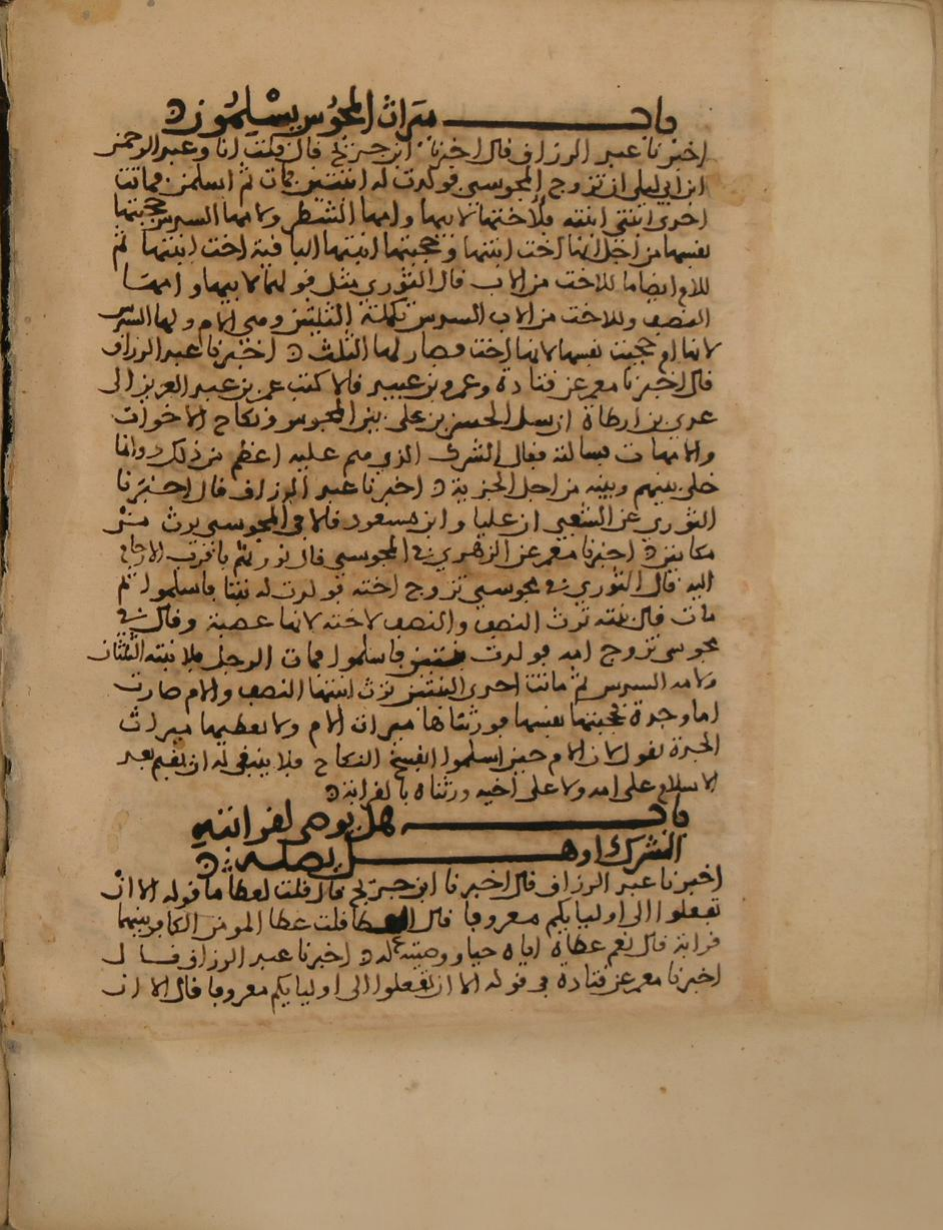 باب ميراث المجوس يسلمون
اخبرنا عبد الرزاق قال اخبرنا ابن جريج قال قلت انا وعبد الرحمن
ابن ابي ليلى ان تزوج المجوسي فولدت له ابنتين فمات ثم اسلمن فماتت
احدى ابنتي ابنته فلاختها لابيها وامها الشطر ولامها السدس حجبتها
نفسها من اجل انها اخت ابنتها وحجبتها ابنتها الباقية اخت ابنتها ثم
للام ايضا ما للاخت من الاب قال الثوري مثل قولهما لابيها وامها
النصف وللاخت من الاب السدس تكملة الثلثين وهي الام ولها السدس
لانها ام حجبت نفسها لانها اخت فصار لها الثلث اخبرنا عبد الرزاق
قال اخبرنا معمر عن قتادة وعمرو بن عبيد قالا كتب عمر بن عبد العزيز الى
عدي بن ارطاة ان سل الحسن بن علي بين المجوس ونكاح الاخوات
والامهات فسالته فقال الشرك الذي هم عليه اعظم من ذلك وانما
خلي بينهم وبينه من اجل الجزية اخبرنا عبد الرزاق قال اخبرنا
الثوري عن الشعبي ان عليا وابن مسعود قالا في المجوسي يرث من
مكانين اخبرنا معمر عن الزهري في المجوسي قال نورثهم باقرب الارحام
اليه قال الثوري في مجوسي تزوج اخته فولدت له بنتا فاسلموا ثم
مات قال بنته ترث النصف والنصف لاخته لانها عصبة وقال في
مجوسي تزوج امه فولدت بنتين فاسلموا فمات الرجل فلابنته الثلثان
ولامه السدس ثم ماتت احدى البنتين ترث ابنتها النصف والام صارت
اما وجدة فحجبتها نفسها فورثناها ميراث الام ولا نعطيها ميراث
الجدة نقول لان الام حين اسلموا انفسخ النكاح فلا ينبغي له ان يقيم بعد
الاسلام على امه ولا على اخيه ورثناه بالقرابة
باب هل يوصي لقرابته
الشرك او هل يصله
اخبرنا عبد الرزاق قال اخبرنا ابن جريج قال قلت لعطا ما قوله الا ان
تفعلوا الى اوليايكم معروفا قال العطا قلت عطا المومن الكافر بينهما
قرابة قال نعم عطاه اياه حيا ووصيته له اخبرنا عبد الرزاق قال
اخبرنا معمر عن قتادة في قوله الا ان تفعلوا الى اوليايكم معروفا قال الا ان